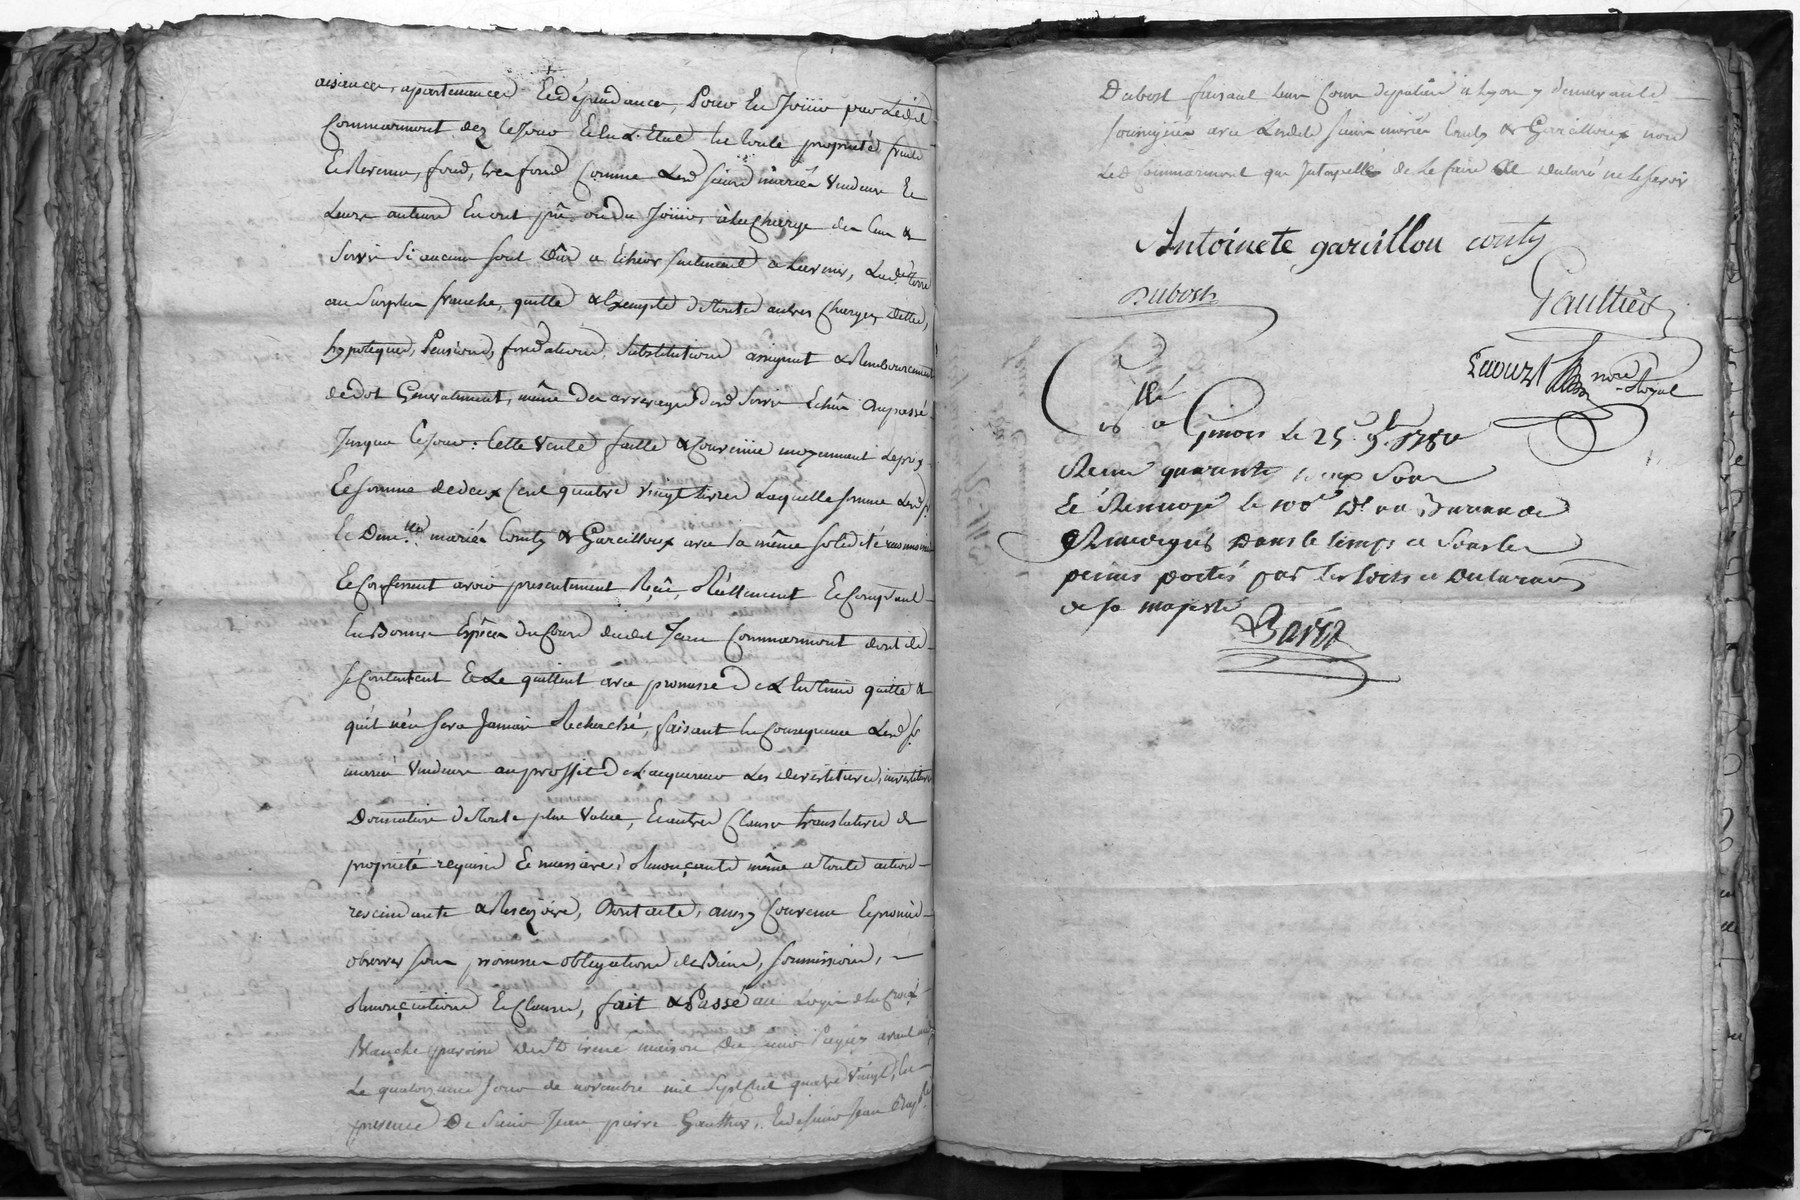 aisances, apartenances Et dépendances, Pour En Joüir par Ledit
Commarmont dez ce Jour En toute propriété fruits
Et Revenus, fond, tres fond Comme Lesd Sieurs mariés Vendeurs Et
Leurs auteurs En ont pû ou du Joüir, à la Charge des Cens &
Servis Si aucuns sont Dûs a Echeoir seulement a Lavenir,
au Surplus franche, quitte & Exempte de toutes autres Charges, dettes,
hypoteques, Pensions, fondations, Substitutions assignat & Remboursement
de dot Generalement, même des arrerages desd Servis Echûs au passé
Jusqua Ce Jour: Cette Vente faitte & Convenüe moyennant Le prix
Et somme de deux Cent quatre Vingt Livres Laquelle somme Lesd Sr
Et Dlle mariés Conty & Garcilloux avec la même solidité
Et Confessent avoir presentement Reçu, Réellement Et Comptant
En Bonnes Espèces du Cours dudit Jean Commarmont dont ils
se Contentent Et Le quittent avec promesse de L'En tenir quitte &
qu'il n'en sera Jamais Recherché, faisant En Consequence Lesd Sr
mariés Vendeurs au proffit de L'acquereur Les devestitures, investitures
Donnation de toute plus Value, Et autres Clauses translatives de
propriété requises Et necessaires, Renonçants même a toute action
rescindante & Rescizoire, Dont acte, ainsy Convenu Et promis
observer sous promesses obligations de Biens, soumissions,
Renonciations Et Clauses, fait & Passé au Logis de la Croix
Blanche parroisse maison Du Sieur avant midy
Le quatorzieme Jour de novembre mil Sept Cent quatre Vingt, En
presence De Sieur Jean pierre Gauthier, Et de Sieur Jean Bapte
Dubost faisant Leur Cours a Lyon y demeurants
soussignés avec Lesdits Sieurs mariés Conty & Garcilloux non
Led Commarmont qui Interpellé de Le faire a Declaré ne Le sçavoir
Antoinete garcillou conty
Dubost
Gaulttier
nore Royal
Cllé
a Le 25 9bre 1780
Recu quarante sous
Et Renvoyé le au Bureau de
dans le temps et sous les
peines portés par les Edits et Declaraons
de sa majesté